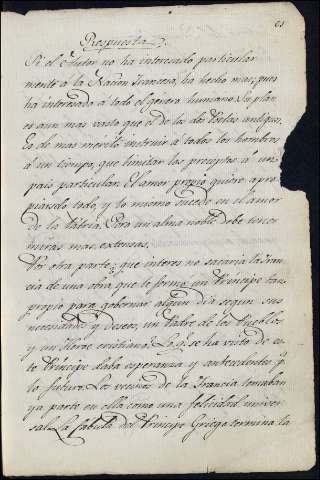 61
Respuesta.
Si el Autor no ha interesado particular
mente à la Nación Francesa, ha hecho mas; pues
ha interesado à todo el género humano. Su plan
es aun mas vasto que el de los dos Poetas antiguos.
Es de mas merito instruir à todos los hombres
à un tiempo, que limitar los preceptos à un
pais particular. El amor propio quiere apro
piarselo todo, y lo mismo sucede en el amor
de la Patria; Pero un alma noble debe tener
miras mas extensas.
Por otra parte, que interes no sacaría la Fran
cia de una obra que le formo un Principe tan
propio para governar algun dia segun sus
necesidades y deseos, un Padre de los Pueblos
y un Heroe cristiano? Lo q.e se ha visto de es
te Principe daba esperanza y antecedentes de
lo futuro. Los vecinos de la Francia tomaban
ya parte en ella como una felicidad univer
sal. La fabula del Principe Griego termina la